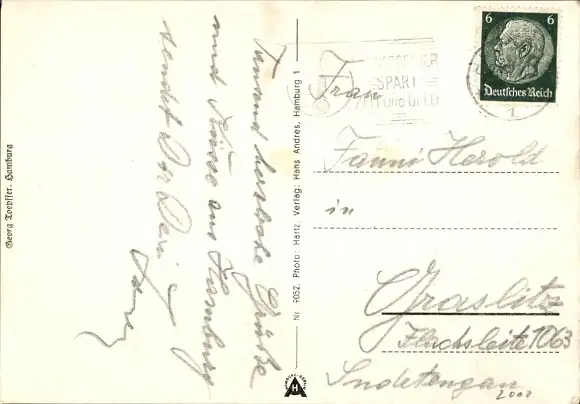 Tausend herzliche Grüße
und Küsse aus Hamburg
sendet Dir Dein
Georg Toepffer. Hamburg
Nr. 9052. Photo: Hartz. Verlag: Hans Andres, Hamburg 1
SPART
ZEIT UND GELD
6 6
Deutsches Reich
1
Frau
Fanni Herold
in
Graslitz
Flachsleite 1063
Sudetengau
2000
H